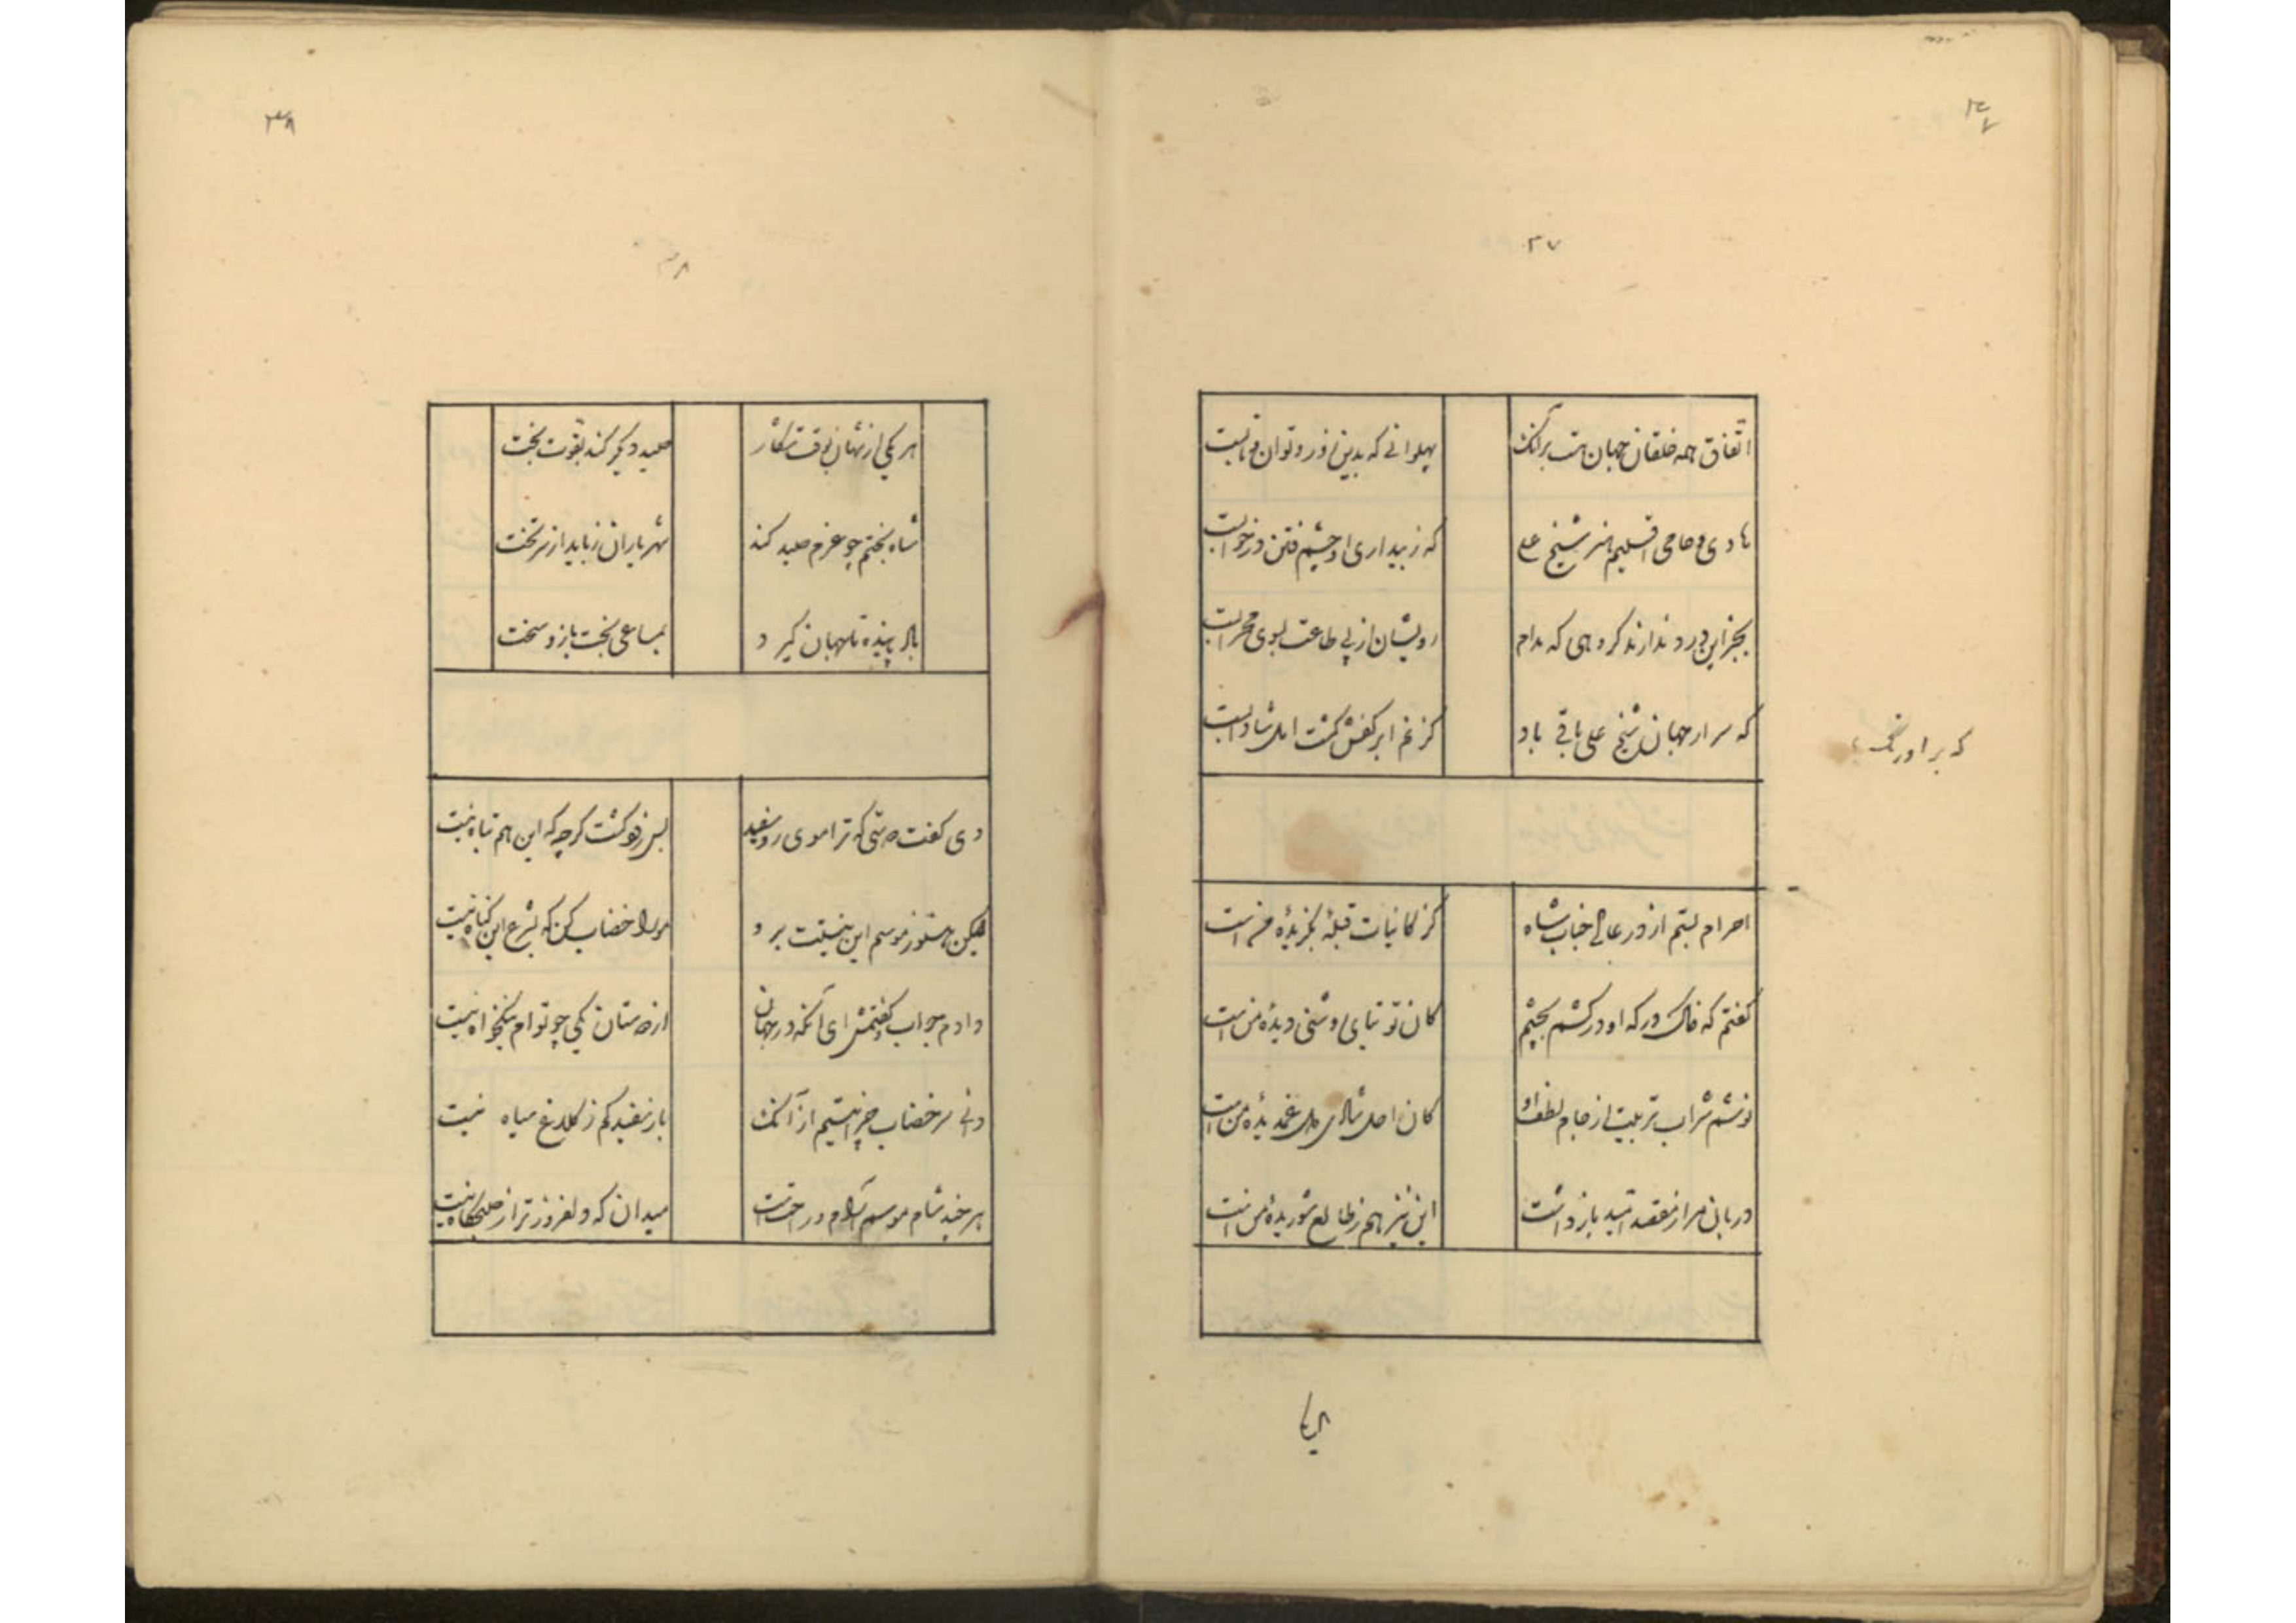 ۳۷
۳۷
اتفاق همه خلقان جهان هست برآنک
پهلوانی که بدین زور و توان
هادی و حامی اقلیم هنر شیخ علی
که ز بیداری او چشم فتن در خوابست
بجز این ورد ندارند گروهی که مدام
رویشان از پی طاعت بسوی محرابست
که سرار جهان شیخ علی باقی باد
کز نم ابر کفش کشت امل شادابست
که بر اورنگ
احرام بستم از در عالی جناب شاه
کز کاینات قبلهٔ بگزیدهٔ منست
گفتم که خاک درکه او درکشم بچشم
کان توتیای روشنی دیدهٔ من است
نوشم شراب تربیت از جام لطف او
کان اصل شادی دل غمدیدهٔ من است
دربان مرا ز مقصد امید باز داشت
این نیز هم ز طالع شوریدهٔ من است
۳۸
۳۸
هر یکی از شهان بوقت شکار
صید دیگر کند بقوت بخت
شاه بختم چو عزم صید کند
شهریاران رباید از سر تخت
تا جهان گیرد
بمساعی بخت بازو سخت
دی گفت دوستی که ترا موی رو سفید
بس زود گشت گرچه که این هم تباه نیست
لیکن هنوز موسم این نیست برو
مو را خضاب کن که بشرع این گناه نیست
دادم جواب و گفتمش ای آنکه در جهان
از دوستان یکی چو توام نیکخواه نیست
دانی سر خضاب چرا نیستم از آنک
باز سفید کم ز کلاغ سیاه نیست
هر چند شام موسم آرام و راحتست
میدان که دلفروزتر از صبحگاه نیست